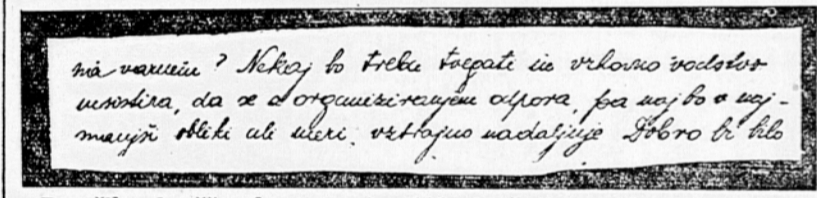 varnim? Nekaj bo treba tvegati in vrhovno vodstvo
insistira, da se z organiziranjem odpora, pa naj bo v naj-
manjši obliki ali meri, vztrajno nadaljuje. Dobro bi bilo